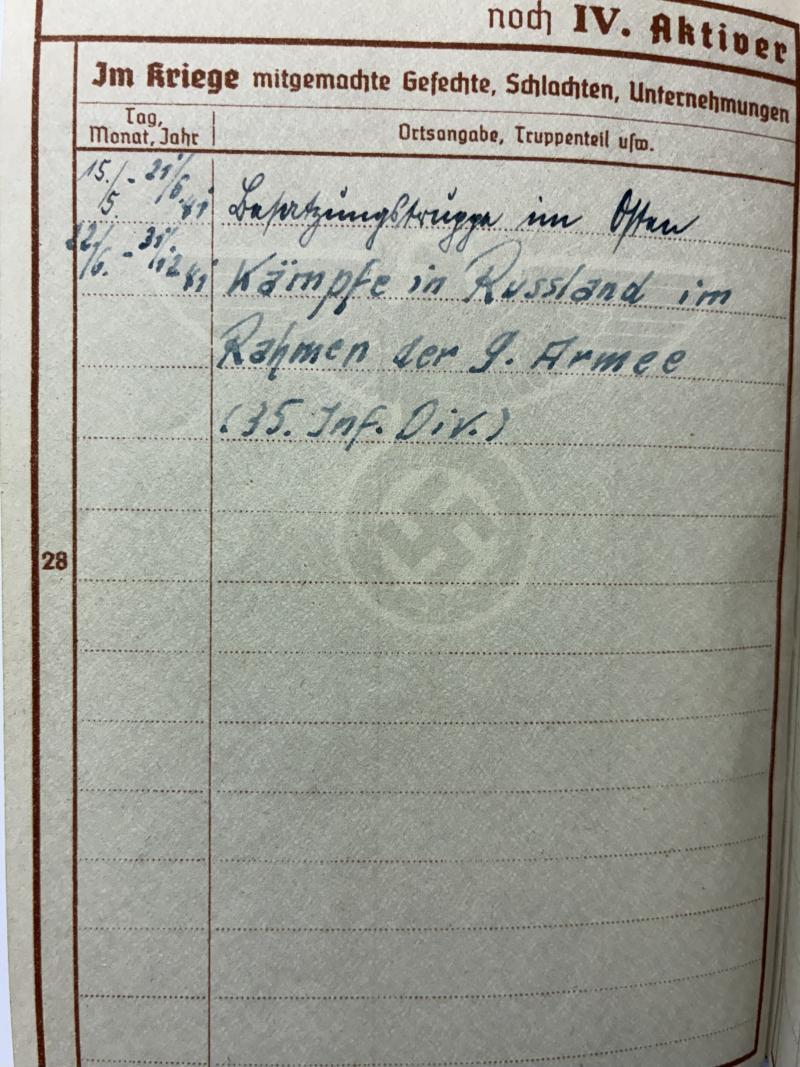 noch IV. Aktiver
Im Kriege mitgemachte Gefechte, Schlachten, Unternehmungen
Tag,
Monat, Jahr
Ortsangabe, Truppenteil usw.
15./5. - 21./6. 41 Besatzungstruppe im Osten
22./6. - 31./12. 41 Kämpfe in Russland im
Rahmen der 9. Armee
(35. Inf. Div.)
28